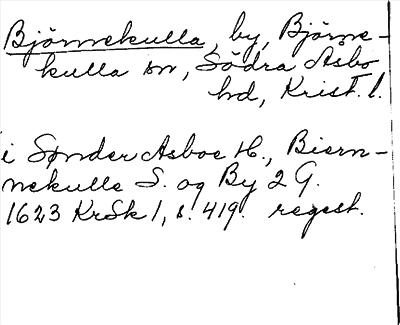 Björnekulla, by, Björne-
kulla sn, Södra Åsbo
hd, Krist. l.
i Sønder Asboe H., Biern-
nekulle S. og By 2 G.
1623 KrSk 1, s. 419. regest.